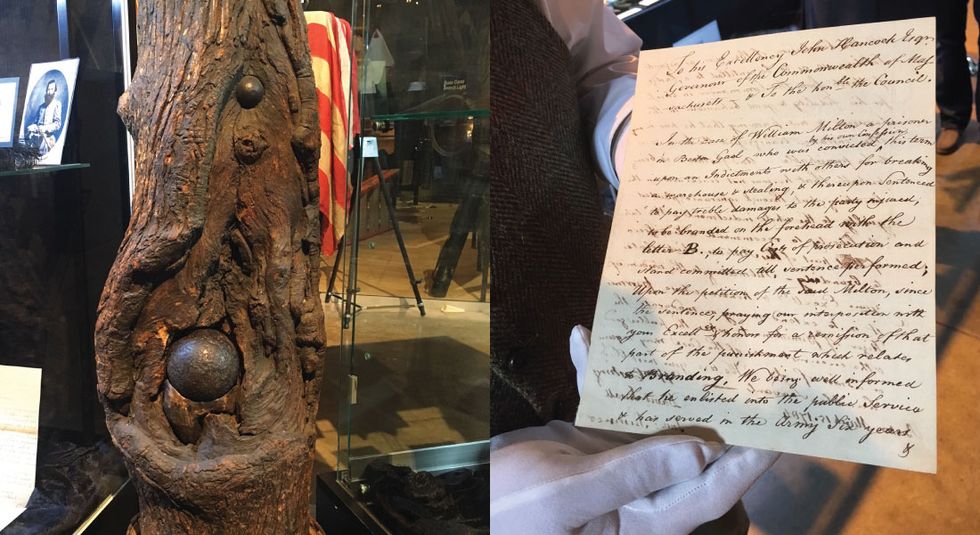 To his Excellency John Hancock Esqr.
Governor of the Commonwealth of Mass
achusett. & To the honble. the Council.
In the Case of William Milton a prisoner
by his own Confession
in Boston Gaol who was convicted, this term
upon an Indictment with others for breaking
a warehouse & stealing, & thereupon Sentenced
to pay treble damages to the party injured,
to be branded on the forehead with the
letter B., to pay Costs of prosecution and
Stand committed till sentence performed;
Upon the petition of the said Milton, since
the Sentence, praying our interposition with
your Excelly. & honors for a remission of that
part of the punishment, which relates
to Branding. We being well informed
that he enlisted into the public Service
& has served in the Army Six years
&